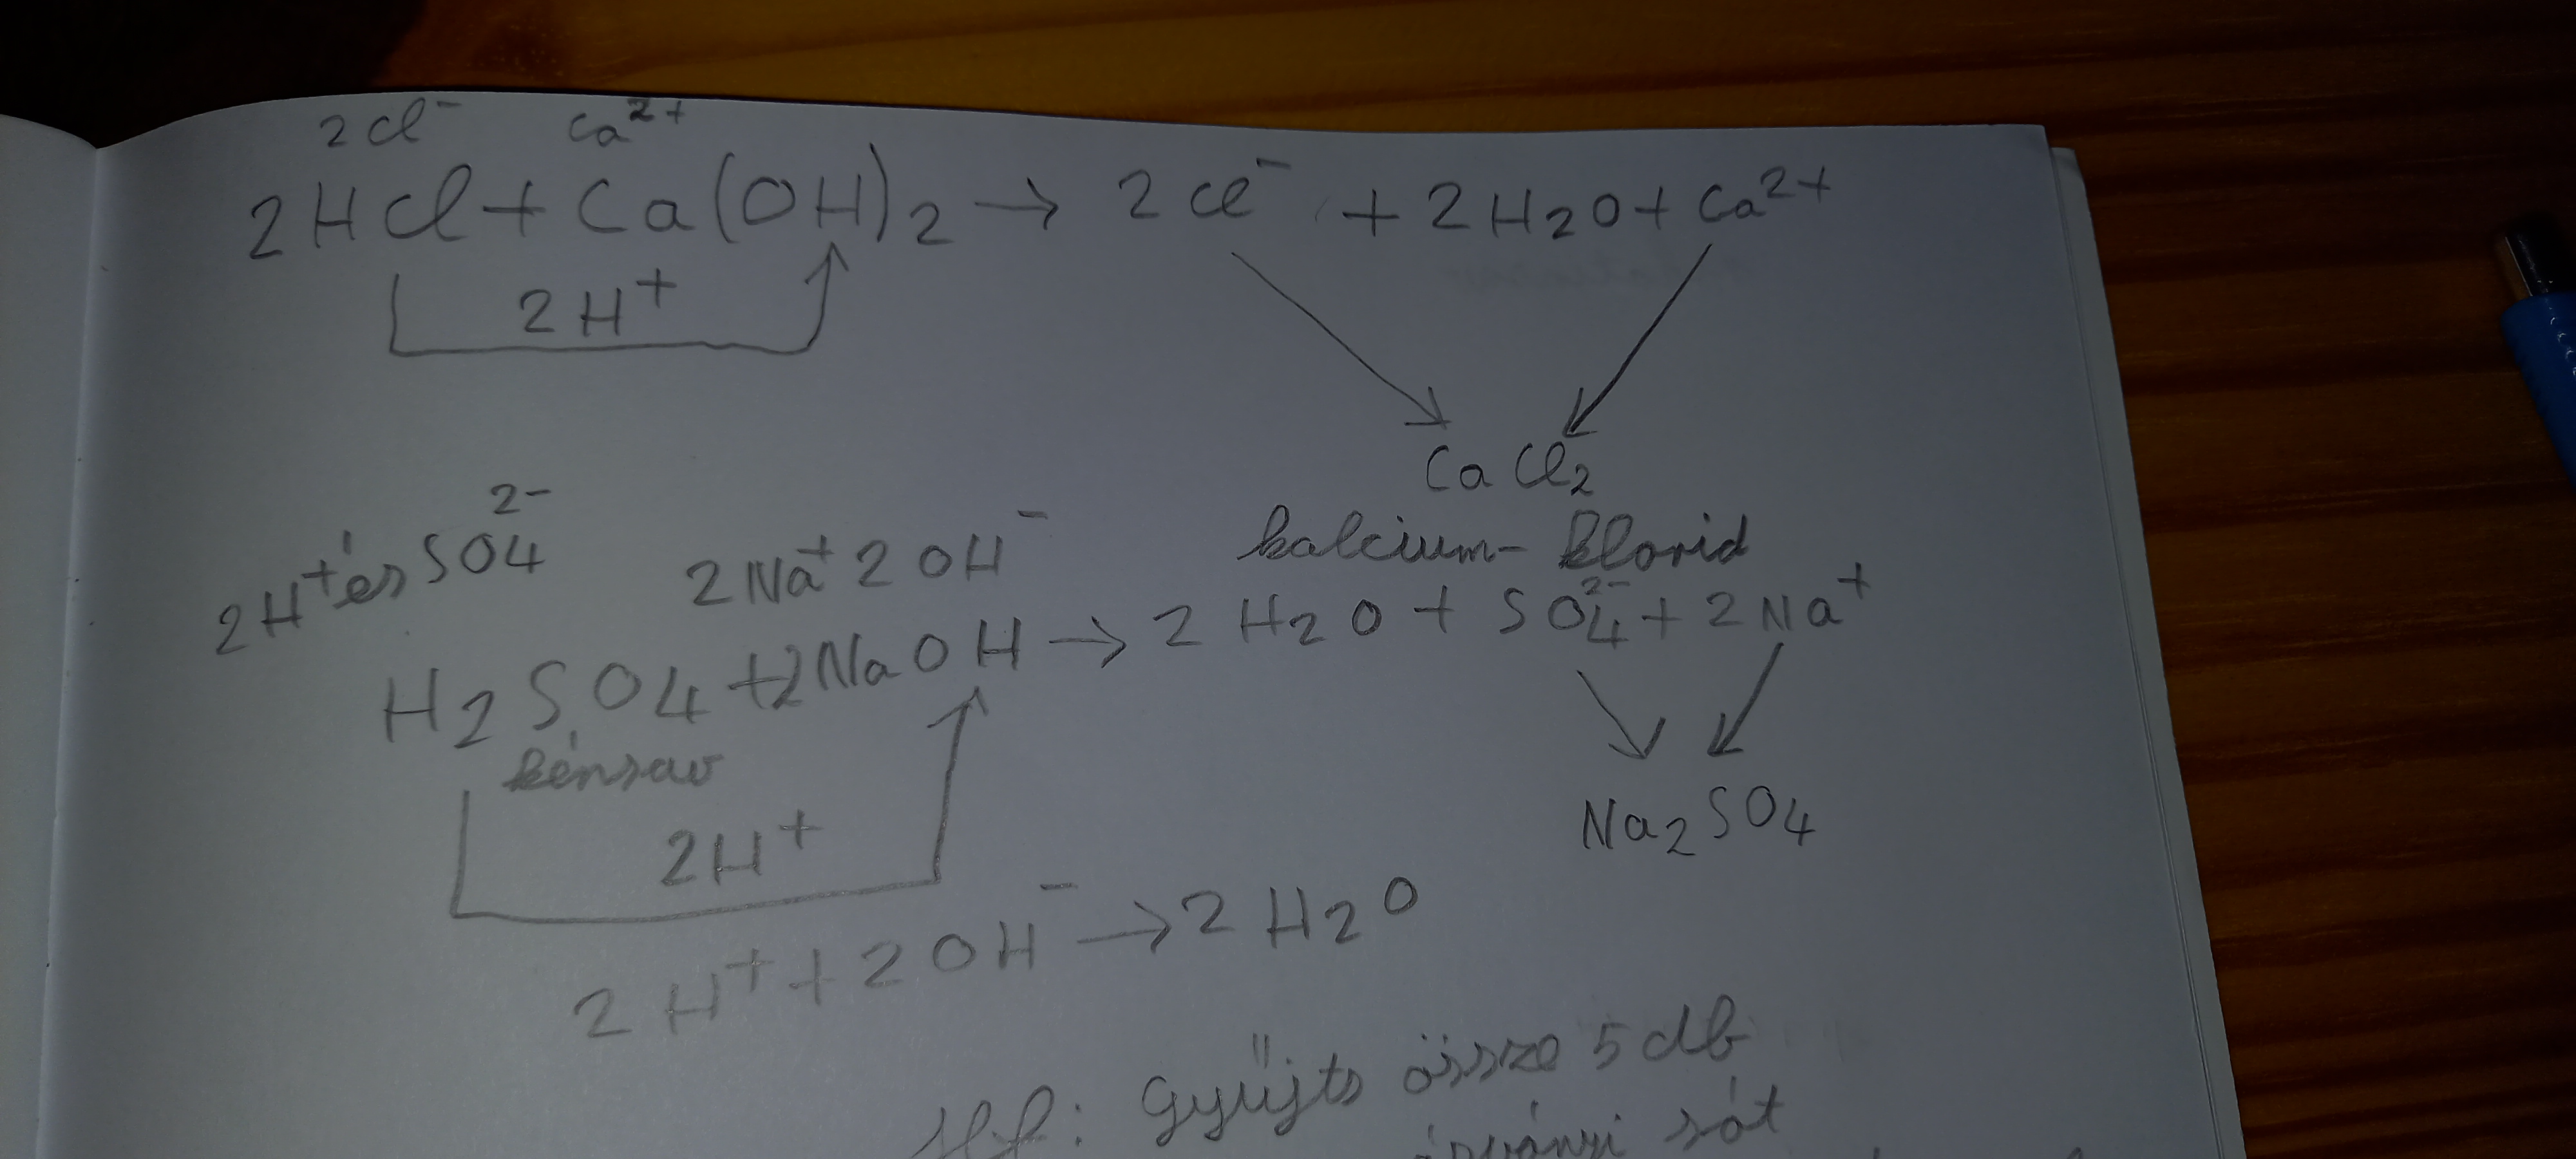 2Cl⁻ Ca²⁺
2HCl + Ca(OH)₂ → 2Cl⁻ + 2H₂O + Ca²⁺
2H⁺
CaCl₂
kalcium-klorid
2H⁺ és SO₄²⁻ 2Na⁺ 2OH⁻
H₂SO₄ + 2NaOH → 2H₂O + SO₄²⁻ + 2Na⁺
kénsav
2H⁺
Na₂SO₄
2H⁺ + 2OH⁻ → 2H₂O
Hf: Gyűjts össze 5 db
sót